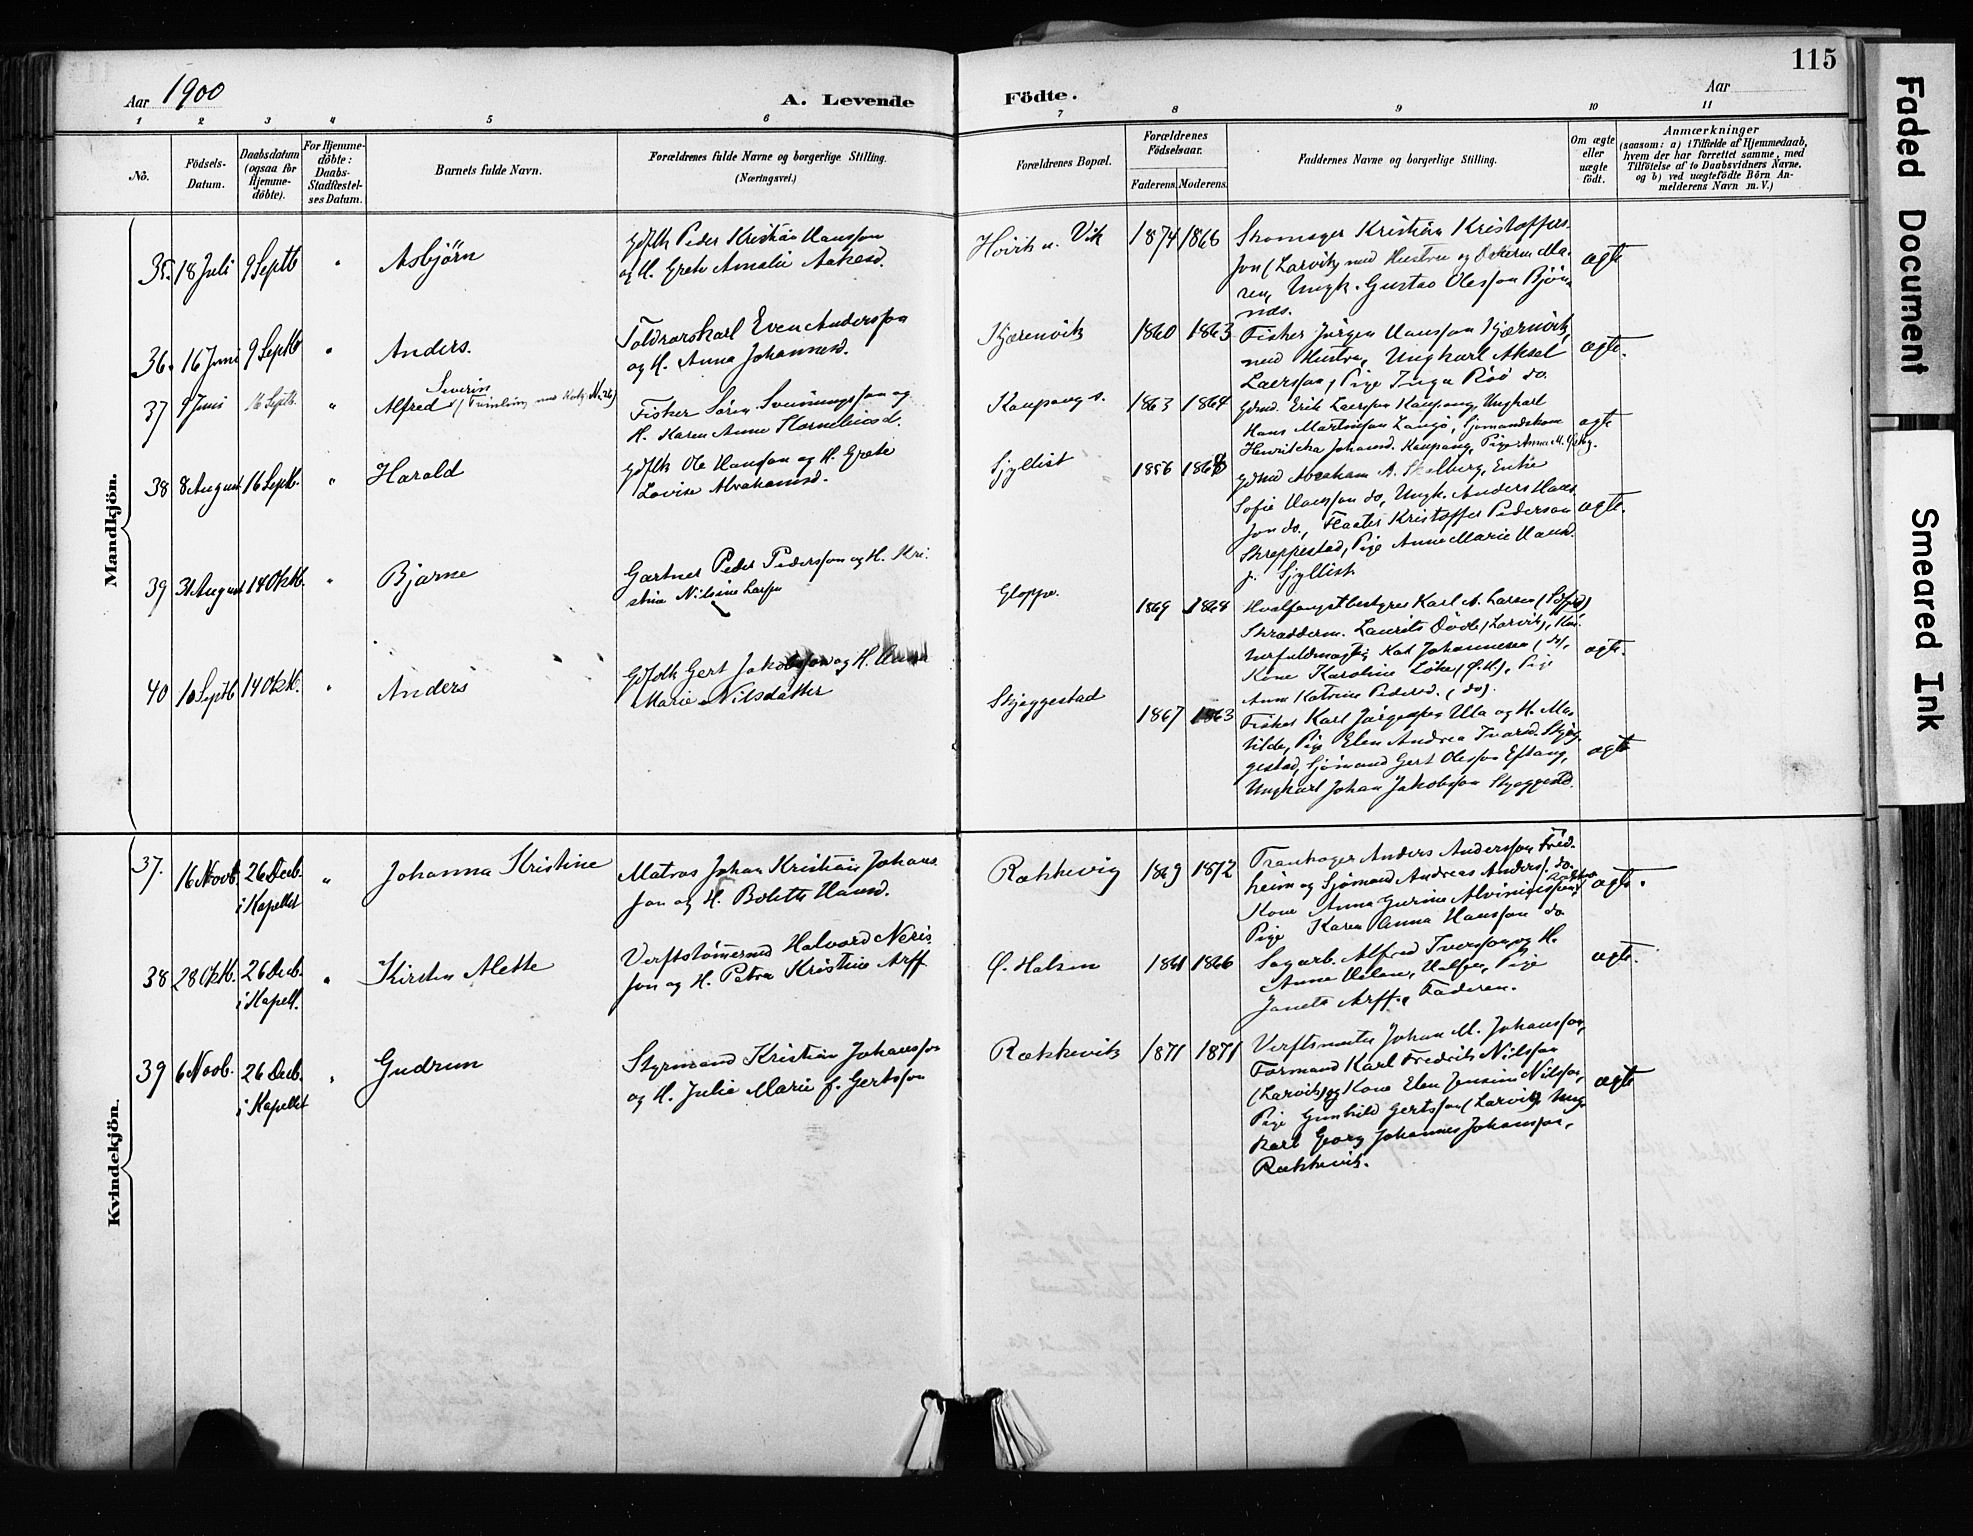 115
Aar 1900
A. Levende
Födte.
Aar
1 2 3 4 5 6 7 8 9 10 11
No.
Födsels-
Datum.
Daabsdatum
(ogsaa for
Hjemme-
döbte).
For Hjemme-
döbte:
Daabs-
Stadfæstel-
ses Datum.
Barnets fulde Navn.
Forældrenes fulde Navne og borgerlige Stilling.
(Næringsvei.)
Forældrenes Bopæl.
Forældrenes
Födselsaar.
Faderens.
Moderens.
Faddernes Navne og borgerlige Stilling.
Om ægte
eller
uægte
födt.
Anmærkninger
(saasom: a) i Tilfælde af Hjemmedaab,
hvem der har forrettet samme, med
Tilföielse af to Daabsvidners Navne.
og b) ved uægtefödte Börn An-
melderens Navn m.V.)
Mandkjön.
35. 18 Juli 9 Septb " Asbjørn
Gdflk Peder Kristian Hansson
og H. Grete Amalie Aakesd.
Hovik n. Vik 1874 1866
Skomager Kristian Kristoffers
son (Larvik) med Hustru og
ren, Ungk. Gustav Olesson Bjøn
nes.
ægte
36. 16 Juni 9 Septb " Anders.
Toldrorskarl Even Andersson
og H. Anna Johannesd.
Kjærenvik 1860 1863
Fisker Jørgen Hansson Kjærnvik,
med Hustru, Ungkarl Aksel
Larsson, Pige Inga Röd do.
ægte.
37 9 Juni 16 Septb. " Alfred Severin (Tvilling med Kvk. No. 26)
Fisker Søren Sveinungsson og
H. Karen Anne Korneliusd.
Kaupang s. 1863 1864
Gdmd. Erik Larsson Kaupang, Ungkarl
Hans Martinson Langö, Sjømandskone
Henrikka Johansd. Kaupang, Pige Anna M.
ægte
38 8 August 16 Septb. " Harald
Gdflk Ole Hanson og H. Grete
Lovise Abrahamsd.
Sjyllist 1856 1868
Gdmd Abraham A. Skalberg, Enke
Sofie Hansson do, Ungk. Anders Hans
son do, Kristoffer Pederson
Skreppestad, Pige Anne Marie Hansd.
Sjyllist
ægte.
39 31 August 14 Oktb. " Bjarne
Gartner Peder Pedersson og H. Kri-
stine Nilsine Larsson
Gloppe. 1869 1868
Hvalfangstbestyrer Karl A. Larsen
Skrædderm. Laurits (Larvik),
Karl Johannesen
Kone Karoline Pige
Anne Katrine Pedersd. (do).
ægte.
40 10 Septb 14 Oktb. " Anders
Gdfolk Gert Jakobsson og H. Anne
Marie Nilsdatter
Skjeggestad 1867 1863
Fisker Karl Jørgensen Ula og H. Ma-
tilde, Pige Elen Andrea Ivarsd. Skjeg-
gestad, Sjømand Gert Olesson Eftang,
Ungkarl Johan Jakobsson Skjeggestd.
ægte
Kvindekjön.
37. 16 Novb. 26 Decb. i Kapellet " Johanna Kristine
Matros Johan Kristian Johans
son og H. Bolette Hansd.
Rækkevig 1869 1872
Tranhager Anders Andersson Fred-
heim og Sjømand Andreas Anders. do.
Kone Anna Gurine Alvinusson,
Pige Karen Anna Hansson do
ægte.
38 28 Oktb. 26 Decb. i Kapell. " Kirsten Alette
Verftstømmermd Halvard Neris-
son og H. Petra Kristine Arff
Ø. Halsen 1861 1866
Sagarb. Alfred Iversson og H.
Anne Helene, Halsen, Pige
Janeta Arff, Faderen.
ægte.
39 6 Novb. 26 Decb. i Kapellet " Gudrun
Styrmand Kristian Johansson
og H. Julie Marie f. Gertsson
Rækkevik 1871 1871
Verftsmester Johan M. Johansson,
Formand Karl Fredrik Nilsson
(Larvik) og Kone Elen Jensine Nilsson,
Pige Gunhild Gertsson (Larvik), Ung-
karl Georg Johannes Johansson,
Rækkevik.
ægte
Faded Document
Smeared Ink